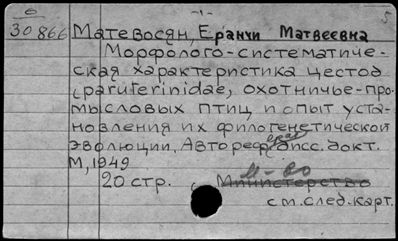 6 -1- 5
30866 Матевосян, Еранчи Матвеевна
Морфолого-систематиче-
ская характеристика цестод
(paruterinidae, охотничье-про-
мысловых птиц и опыт уста-
новления их филогенетической
эволюции. Автореф. дисс. докт.
М, 1949
20 стр. Министерство
см. след. карт.